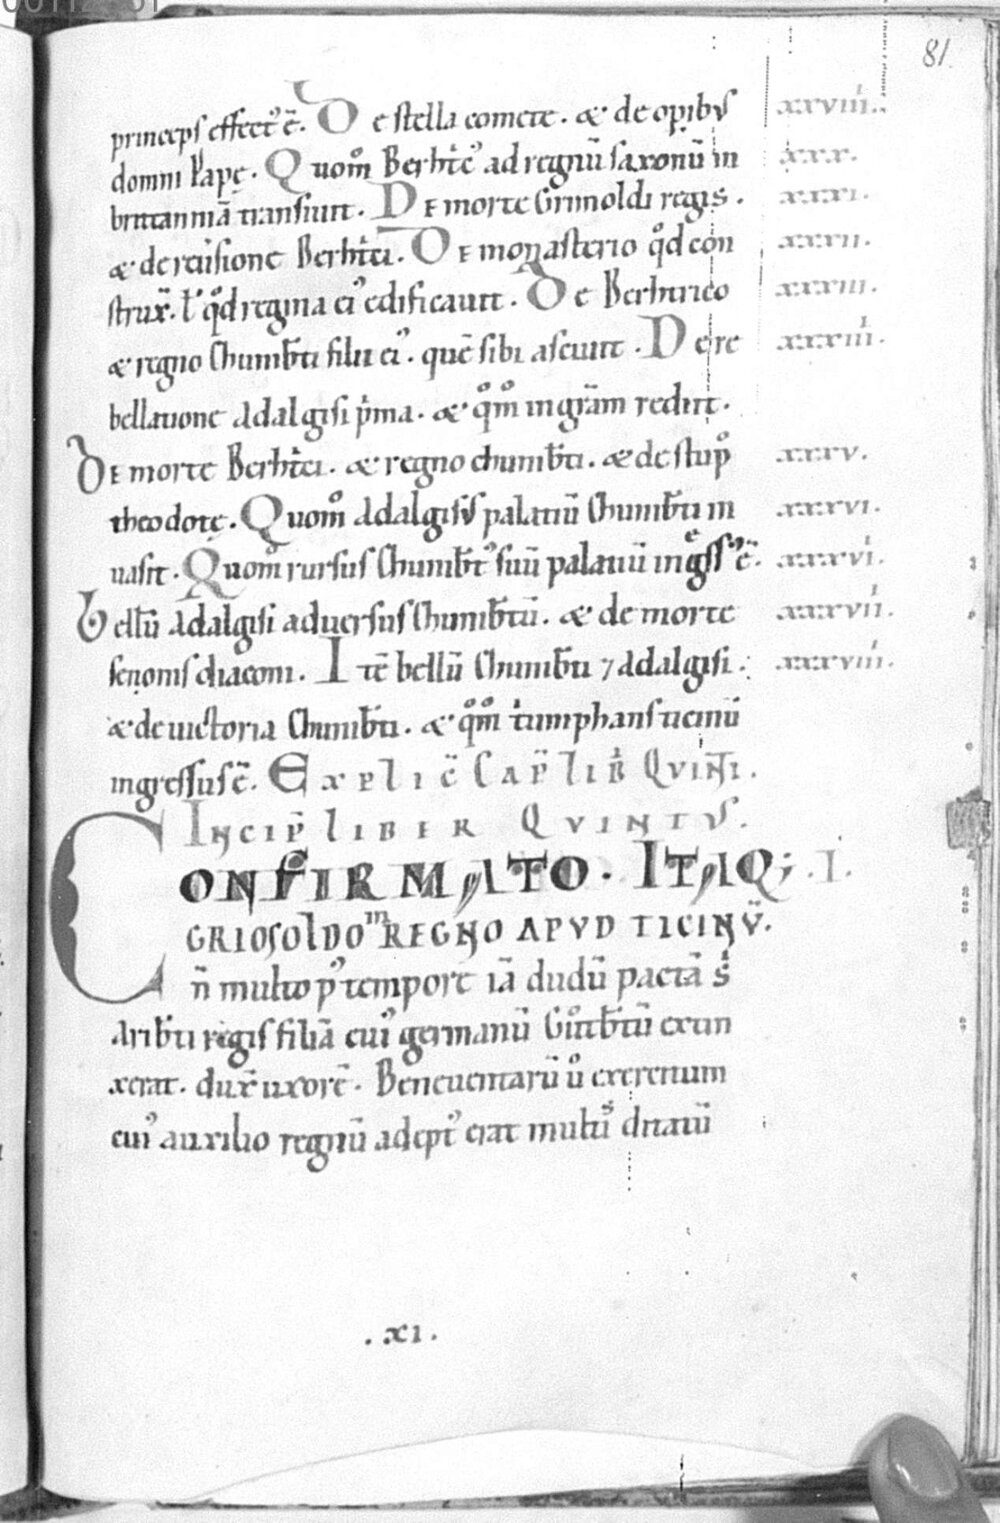 81.
princeps effect' ē. De stella comete. & de opibus xxviiii.
domni Papę. Quom̊ Berht̄c' ad regnū saxonū in xxx.
brittanniā transiuit. De morte Grimoldi regis. xxxi.
& de reuisione Berht̄ci. De monasterio q̊d con xxxii.
strux̄. l' q̊d regina ei' edificauit. De Berhtrico xxxiii.
& regno Chumb̄ti filii ei'. quē sibi asciuit. De re xxxiiii.
bellatione Adalgisi p̄ma. & q̊m̊ in grām rediit.
De morte Berht̄ci. & regno chumb̄ti. & de stup̊ xxxv.
theodotę. Quom̊ Adalgisus palatiū Chumb̄ti in xxxvi.
uasit. Quom̊ rursus Chumb̄t' suū palatiū ingssˀ ē. xxxvi.
Bellū Adalgisi aduersus Chumb̄tū. & de morte xxxvii.
senonis diaconi. Itē bellū Chumb̄ti 7 Adalgisi. xxxviii.
& de uictoria Chumb̄ti. & q̊m̊ tiumphans ticinū
ingressus ē. Explic̄ Cap̄ lib̄ Quinti.
Incip̄ liber Quintus.
CONFIRMATO. ITAQ; I.
GRIOSOLDO ᵐREGNO APVD TICINV̄.
n̄ multo p' tempore iā dudū pactā s
Arib̄ti regis filiā cui' germanū God̄b̄tū extin
xerat. dux̄ uxorē. Beneuentarū ů exercitum
cui' auxilio regnū adept' erat multū ditatū
.xi.